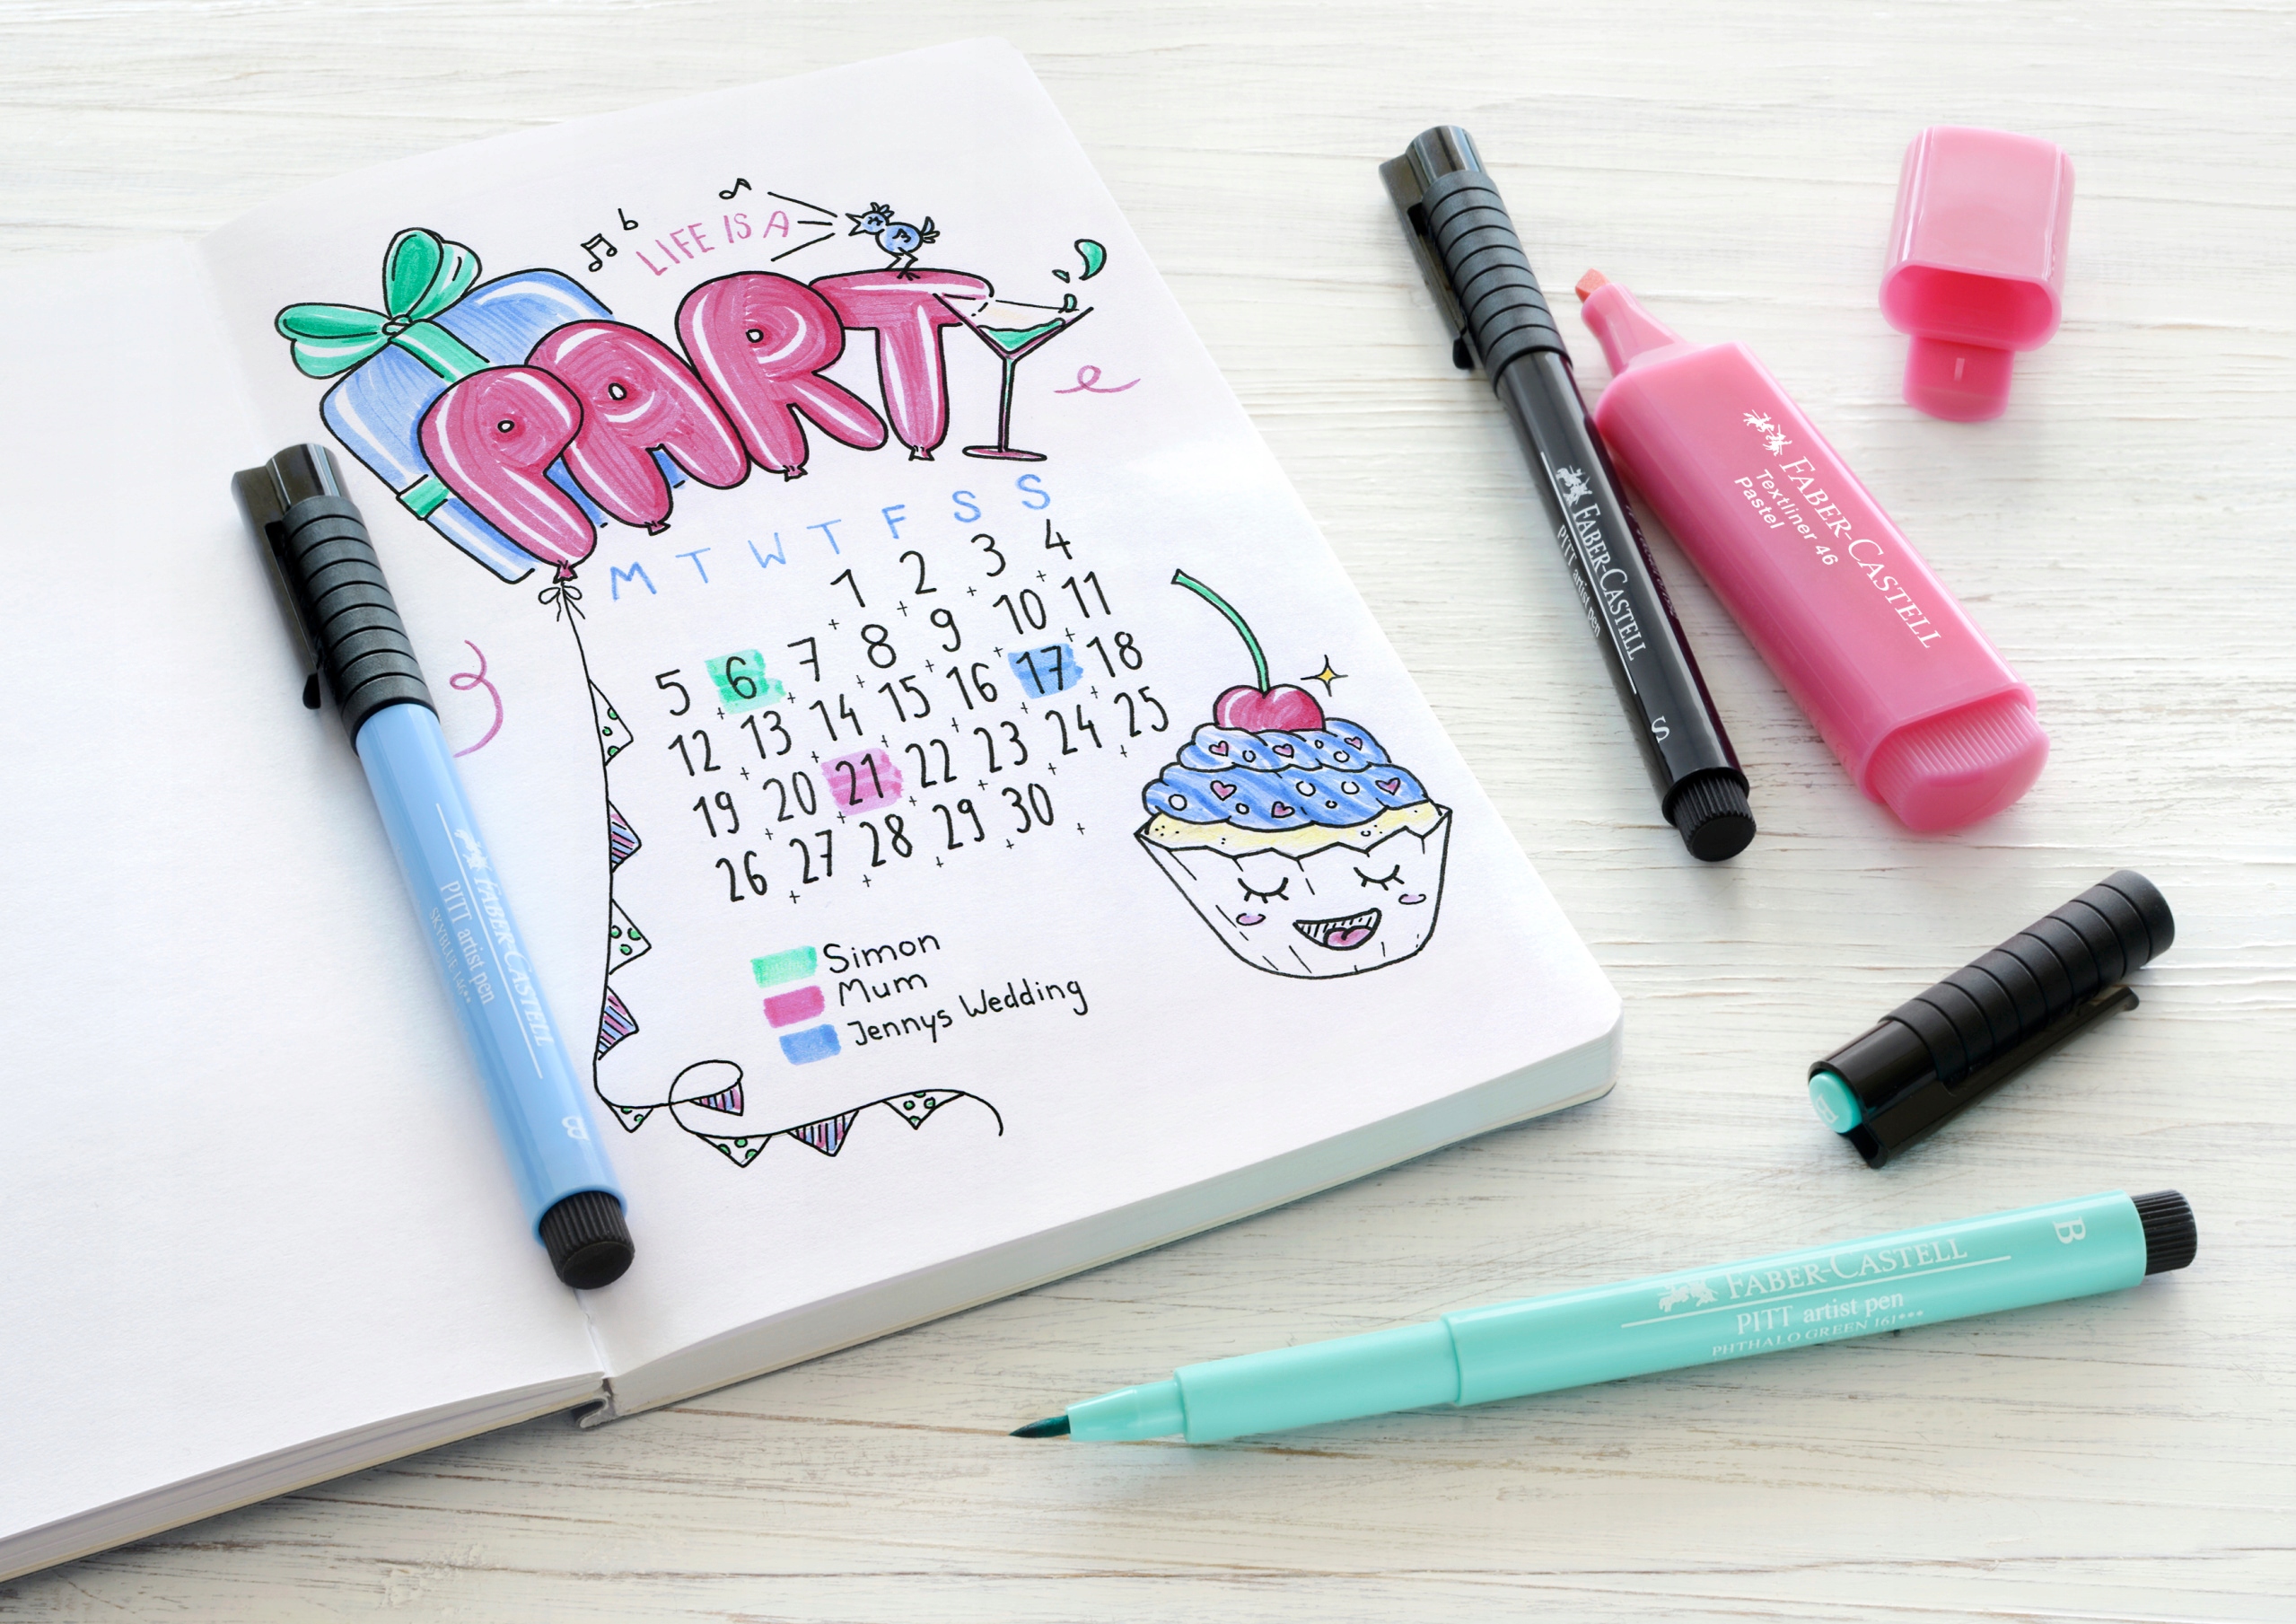 LIFE IS A
PARTY
M T W T F S S
1 2 3 4
5 6 7 8 9 10 11
12 13 14 15 16 17 18
19 20 21 22 23 24 25
26 27 28 29 30
Simon
Mum
Jennys Wedding
FABER-CASTELL
PITT artist pen
SKYBLUE 146**
B
FABER-CASTELL
PITT artist pen
S
FABER-CASTELL
Textliner 46
Pastel
B
FABER-CASTELL
PITT artist pen
PHTHALO GREEN 161***
B